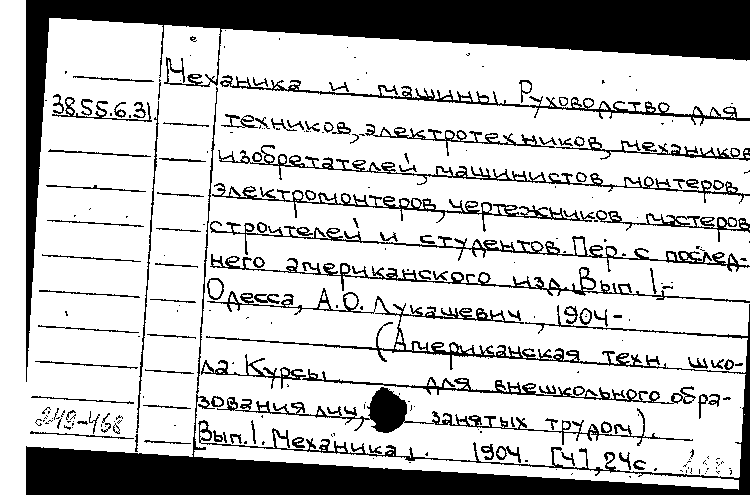 Механика и машины. Руководство для
38.55.6.31.
техников, электротехников, механиков
изобретателей, машинистов, монтеров,
электромонтеров, чертежников, мастеров
строителей и студентов. Пер. с послед-
него американского изд. Вып. I,-
Одесса, А.О. Лукашевич, 1904-
(Американская техн. шко-
ла: Курсы для внешкольного обра-
зования лиц, занятых трудом).
249-468
[Вып. I. Механика]. 1904. [4], 24с.